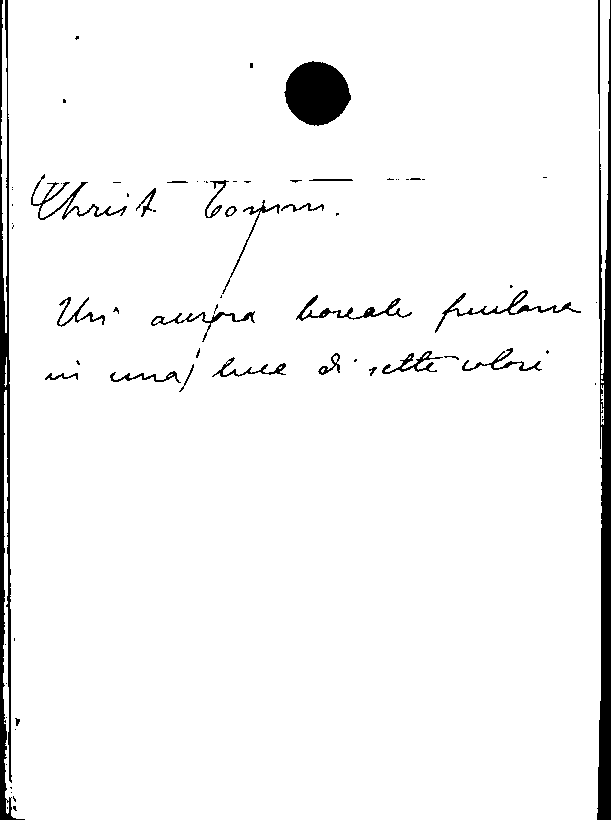 Christ Tomm.
Un' aurora boreale friulana
in una luce di sette colori